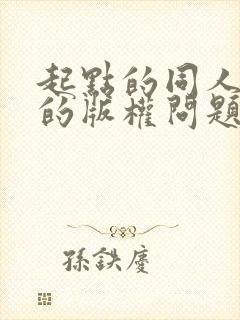 起點的同人
的版權問題
孫鉄慶